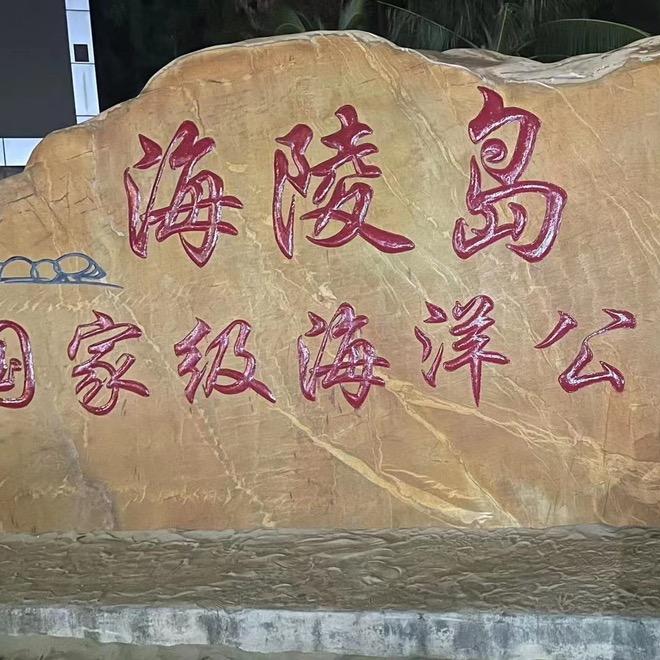 海陵岛
国家级海洋公